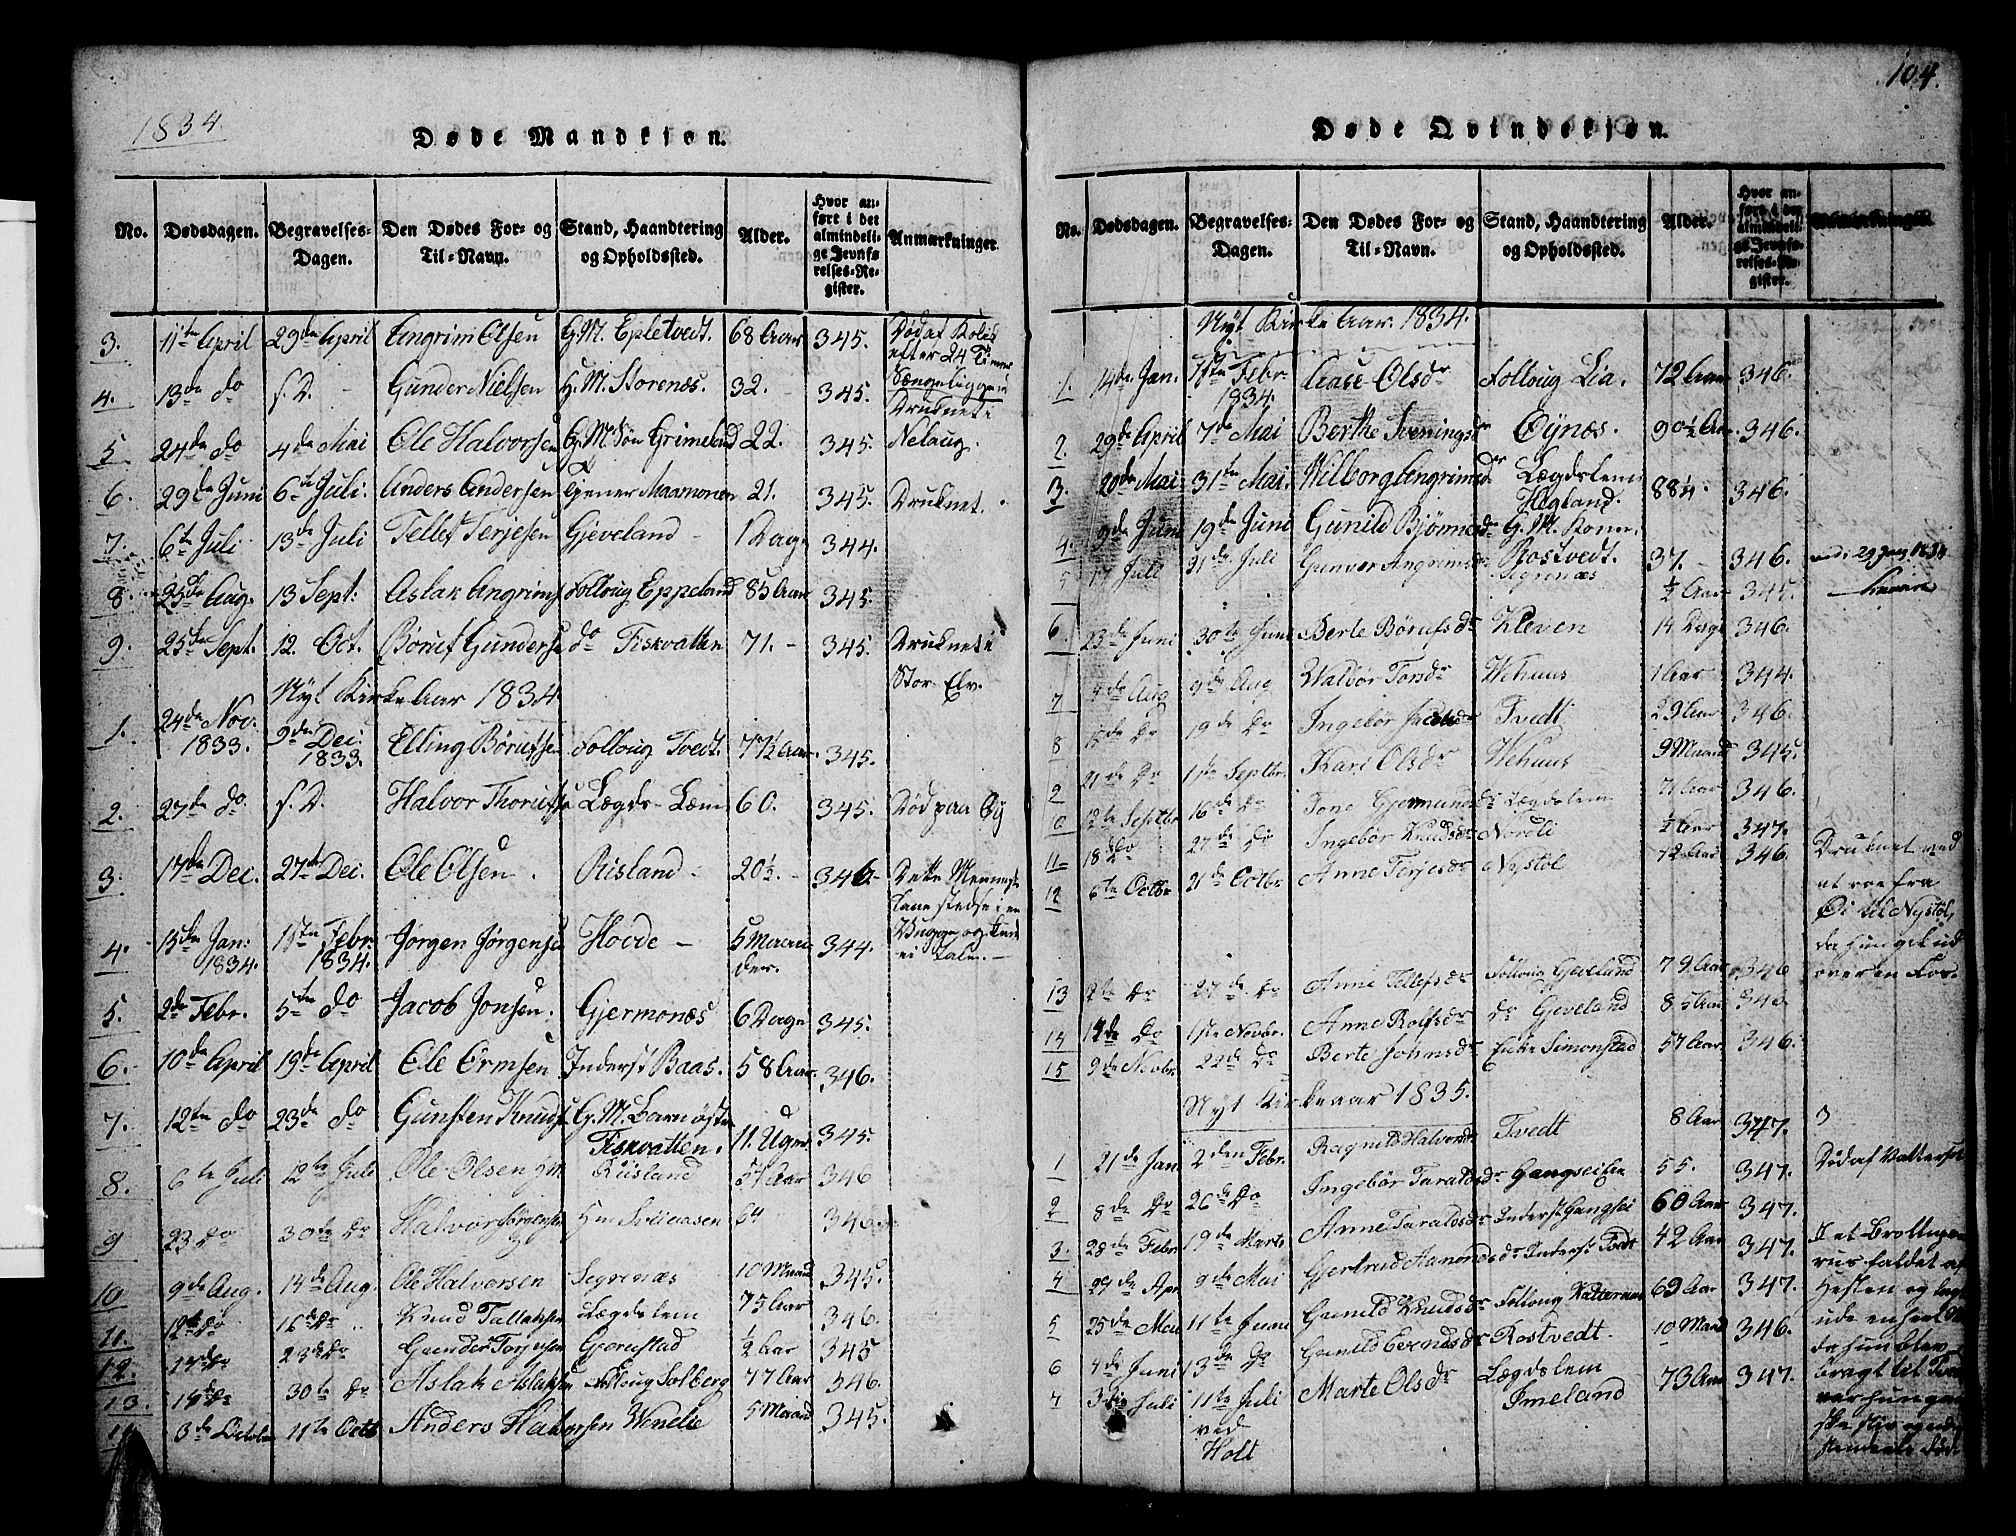 1834
Døde Mandkjøn.
No. Dødsdagen. Begravelses-Dagen. Den Dødes For- og Til-Navn. Stand, Haandtering og Opholdssted. Alder. Hvor anført i det almindelige Jevnførelses-Register. Anmærkninger
3. 11te April 29de April Angrim Olsen G. M. Epletvedt. 68 Aar 345. Død af Kolik efter 24 Timer Sængeliggen
4. 13de do s. D. Gunder Nielsen G. M. Storenæs. 32. 345. Druknet i
5 24de do 4de Mai Ole Halvorsen G. M. Søn Grimeland 22. 345. Nelaug.
6. 29de Juni 6te Juli. Anders Andersen Tjener Maamonen 21. 345. Druknet.
7. 6te Juli 13de Juli Tellef Terjesen Gjeveland 1 Dage 344.
8. 25de Aug. 13 Sept: Aslak Angrims Følloug Eppeland 85 Aar 345.
9. 25te Sept. 12. Oct. Børuf Gunders do Fiskvatten 71. - 345. Druknet i
Nyt Kirke Aar 1834. Stor-Elv.
1. 24de Nov. 1833. 9de Dec. 1833. Elling Børufsen Følloug Tvedt. 77½ Aar 345.
2. 27de do s. D. Halvor Thorufs Lægds-Lem 60. 345. Død paa Øy
3. 17de Dec. 27de Dec. Ole Olsen. Risland - 20½. - 346. Dette Menneske
laae stedse i en
Vugge og kunde
ei tale. -
4. 15de Jan: 1834. 15te Febr. 1834. Jørgen Jørgens Hovde - 5 Maaneder. 344.
5. 2de Febr. 5te do Jacob Jonsen. Gjermonæs 6 Dage 345.
6. 10de April 19de April Ole Ormsen Inderst Baas. 58 Aar 346.
7. 12te do 23de do Gunsten Knuds G. M. Barn østre Fiskvatten. 11. Uger 345.
8. 6te Juli 12te Juli Ole Olsen Riisland 57 Aar 346
9 23 Do 30te Do Halvor Jørgensen 64 346.
10 9de Aug. 14de Aug. Ole Halvorsen Segrenæs 10 Maand 345.
11. 12te Do 16de Do Knud Tallaksen Lægdslem 75 Aar 346.
12. 14de Do 23de Do Gunder Torjesen Gjerustad ½ Aar 345
13. 14de Do 30te Do Aslak Aslaks Følloug Solberg 77 Aar 346.
3de Octbr 11te Octb Anders Halvorsen Wenelie 5 Maaned 345.
104.
Døde Qvindekjøn.
No. Dødsdagen. Begravelses-Dagen. Den Dødes For- og Til-Navn. Stand, Haandtering og Opholdssted. Alder. Hvor anført i det almindelige Jevnførelses-Register. Anmærkninger.
Nyt Kirke Aar. 1834.
1. 14de Jan. 15te Febr. 1834. Aase Olsdr Følloug Lia. 72 Aar 346.
2. 29de April 7de Mai Berthe Sveningsdr Øynæs. 90½ Aar. 346.
3. 20de Mai 31te Mai. Wilborg Angrimsdr Lægdslem Hegland. 88¼. 346.
4. 9de Juni 19de Juni Gunild Bjørnsdr G. M. Kone. Rostvedt. 37. - 346.
5 17 Juli 31de Juli Gunvor Angrimsdr Segrenæs ½ Aar 345.
6. 23de Juni 30te Juni Berte Børufsdr Kleven 14 Dage 346.
7 4de Aug 9de Aug Walbør Torsdr Wehuus 1 Aar 344.
8 15de Do 19de Do Ingebør Jacobsdr Tvedt 29 Aar 346.
21de Do 1ste Septbr. Kari Olsdr Wehuus 9 Maaned 345.
12te Septbr 16de Do Tone Gjermundsdr Lægdslem 71 Aar 346.
11 18 Do 27de Do Ingebør Knudsdr Nordli ½ Aar 347.
12 6te Octbr 21de Octbr Anne Terjesdr Nystøl 12 Aar 346. Druknet ved
at roe fra
Øi til Nystøl,
da hun gik ud
over en Fos.
13 2te Do 27de Do Anne Tellefsdr Følloug Gjeveland 79 Aar 346
14 14de Do 1ste Novbr. Anne Rolfsdr do Gjeveland 85 Aar 346.
15 9de Novbr. 22de Do Berte Johnsdr Enke Simonstad 57 Aar 346.
Nyt Kirkeaar 1835.
1 21de Jan. 2den Febr. Ragnild Halvorsdr Tvedt 8 Aar 347.
2 8de Do 26de Do Ingebør Taraldsdr Gangsei Enke 55. 347. Død af Vattersot
3. 28de Febr. 19de Marts Anne Taraldsdr Inderst Gangsei 60 Aar 347.
4 29de Apr 9de Mai Gjertrud Aamondsdr Inderst Tvedt 42 Aar 347. I et Brollups
rus faldet af
Hesten og lagt
ude en heel Nat
da hun blev
bragt til Tvedt
var hun gan
ske stiv og ved
5 25de Mai 11te Juni Gunild Knudsdr Følloug Vatternæs 69 Aar 347.
6 4de Juni 13de Do Gunild Evensdr Rostvedt. 10 Maand 346.
7 3die Juli 11te Juli ved Holt Marte Olsdr Lægdslem Imeland 73 Aar 347.